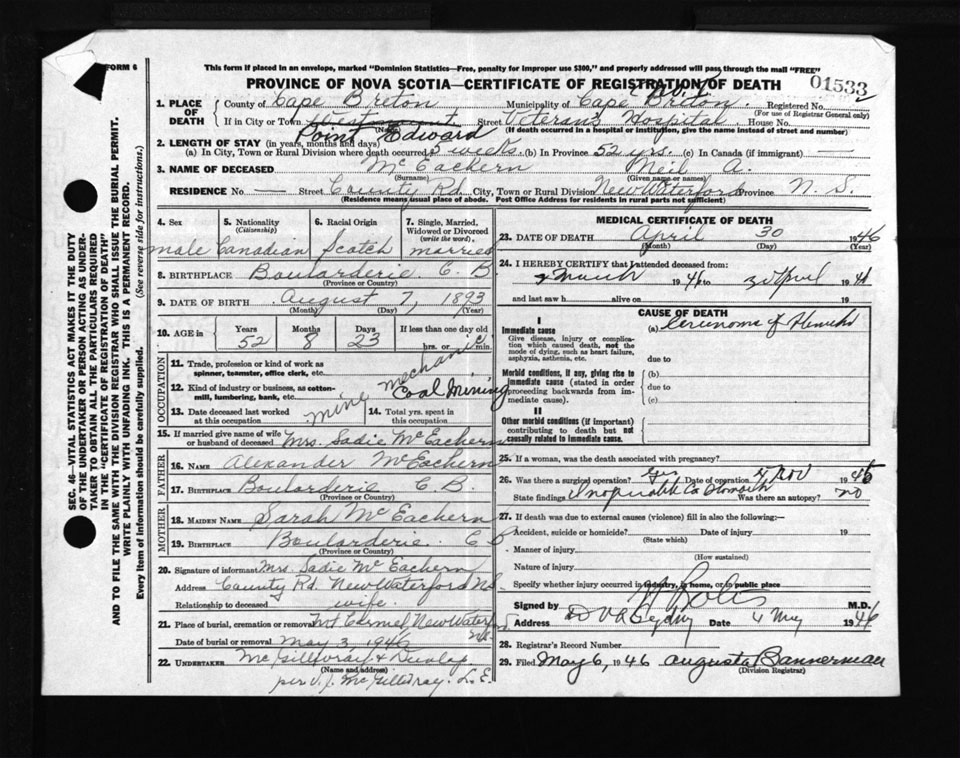 FORM 6
This form if placed in an envelope, marked "Dominion Statistics—Free, penalty for improper use $300," and properly addressed will pass through the mail "FREE"
PROVINCE OF NOVA SCOTIA—CERTIFICATE OF REGISTRATION OF DEATH
01533
1. PLACE OF DEATH
County of Cape Breton Municipality of Cape Breton. Registered No.
(For use of Registrar General only)
If in City or Town Point Edward (Name) Street Veterans Hospital. House No.
(If death occurred in a hospital or institution, give the name instead of street and number)
2. LENGTH OF STAY (in years, months and days)
(a) In City, Town or Rural Division where death occurred 5 weeks. (b) In Province 52 yrs. (c) In Canada (if immigrant) —
3. NAME OF DECEASED McEachern Neil A.
(Surname) (Given name or names)
RESIDENCE No — Street County Rd. City, Town or Rural Division New Waterford Province N. S.
(Residence means usual place of abode. Post Office Address for residents in rural parts not sufficient)
4. Sex 5. Nationality (Citizenship) 6. Racial Origin 7. Single, Married, Widowed or Divorced (write the word).
male Canadian Scotch married
8. BIRTHPLACE Boularderie C. B.
(Province or Country)
9. DATE OF BIRTH August 7, 1893
(Month) (Day) (Year)
10. AGE in Years Months Days If less than one day old
52 8 23 hrs. or min.
OCCUPATION
11. Trade, profession or kind of work as spinner, teamster, office clerk, etc. mechanic
12. Kind of industry or business, as cotton-mill, lumbering, bank, etc. Coal Mining
mine
13. Date deceased last worked at this occupation 14. Total yrs. spent in this occupation
15. If married give name of wife or husband of deceased Mrs. Sadie McEachern
FATHER
16. NAME Alexander McEachern
17. BIRTHPLACE Boularderie C. B.
(Province or Country)
MOTHER
18. MAIDEN NAME Sarah McEachern
19. BIRTHPLACE Boularderie C B
(Province or Country)
20. Signature of informant Mrs. Sadie McEachern
Address County Rd. New Waterford N.S.
Relationship to deceased wife.
21. Place of burial, cremation or removal Mt Carmel, New Waterford N.S.
Date of burial or removal May 3, 1946
22. UNDERTAKER McGillivray & Dunlap
(Name and address)
per J. J. McGillivray. L. E.
MEDICAL CERTIFICATE OF DEATH
23. DATE OF DEATH April 30 1946
(Month) (Day) (Year)
24. I HEREBY CERTIFY that I attended deceased from:
March 1946 to 30 April 1946
and last saw h alive on 19
CAUSE OF DEATH
I
Immediate cause (a) Carcinoma of Stomach
Give disease, injury or complication, which caused death, not the mode of dying, such as heart failure, asphyxia, asthenia, etc.
due to
Morbid conditions, if any, giving rise to immediate cause (stated in order proceeding backwards from immediate cause).
(b)
due to
(c)
II
Other morbid conditions (if important) contributing to death but not causally related to immediate cause.
25. If a woman, was the death associated with pregnancy?
26. Was there a surgical operation? Yes Date of operation Nov 1945
State findings Inoperable Ca Stomach Was there an autopsy? no
27. If death was due to external causes (violence) fill in also the following:—
Accident, suicide or homicide? Date of injury 19
(State which)
Manner of injury
(How sustained)
Nature of injury
Specify whether injury occurred in industry, in home, or in public place
Signed by M.D.
Address D V A Sydney Date 4 May 1946
28. Registrar's Record Number
29. Filed May 6, 1946 Augusta Bannerman
(Division Registrar)
SEC. 46—VITAL STATISTICS ACT MAKES IT THE DUTY
OF THE UNDERTAKER OR PERSON ACTING AS UNDER-
TAKER TO OBTAIN ALL THE PARTICULARS REQUIRED
IN THE "CERTIFICATE OF REGISTRATION OF DEATH"
AND TO FILE THE SAME WITH THE DIVISION REGISTRAR WHO SHALL ISSUE THE BURIAL PERMIT.
WRITE PLAINLY WITH UNFADING INK. THIS IS A PERMANENT RECORD.
Every item of information should be carefully supplied. (See reverse side for instructions.)